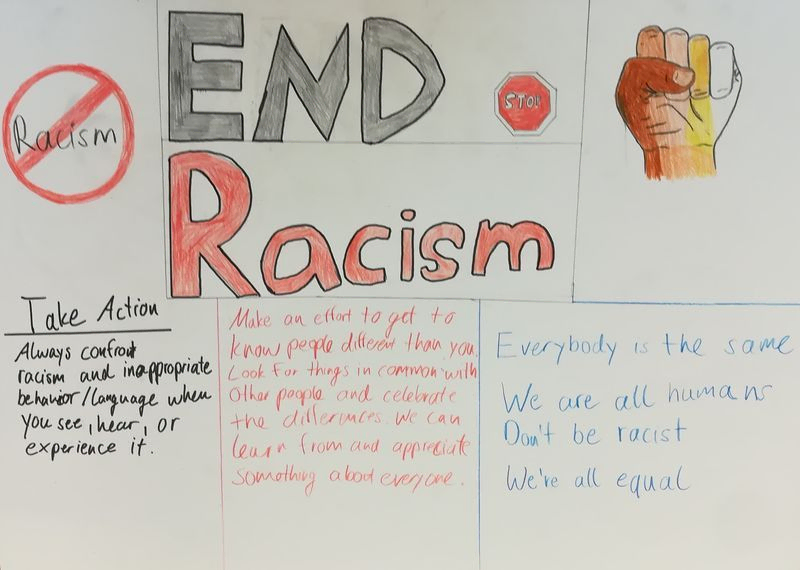 END
STOP
Racism
Racism
Take Action
Always confront
racism and inappropriate
behavior/language when
you see, hear, or
experience it.
Make an effort to get to
know people different than you.
Look for things in common with
other people and celebrate
the differences. We can
learn from and appreciate
something about everyone.
Everybody is the same
We are all humans
Don't be racist
We're all equal